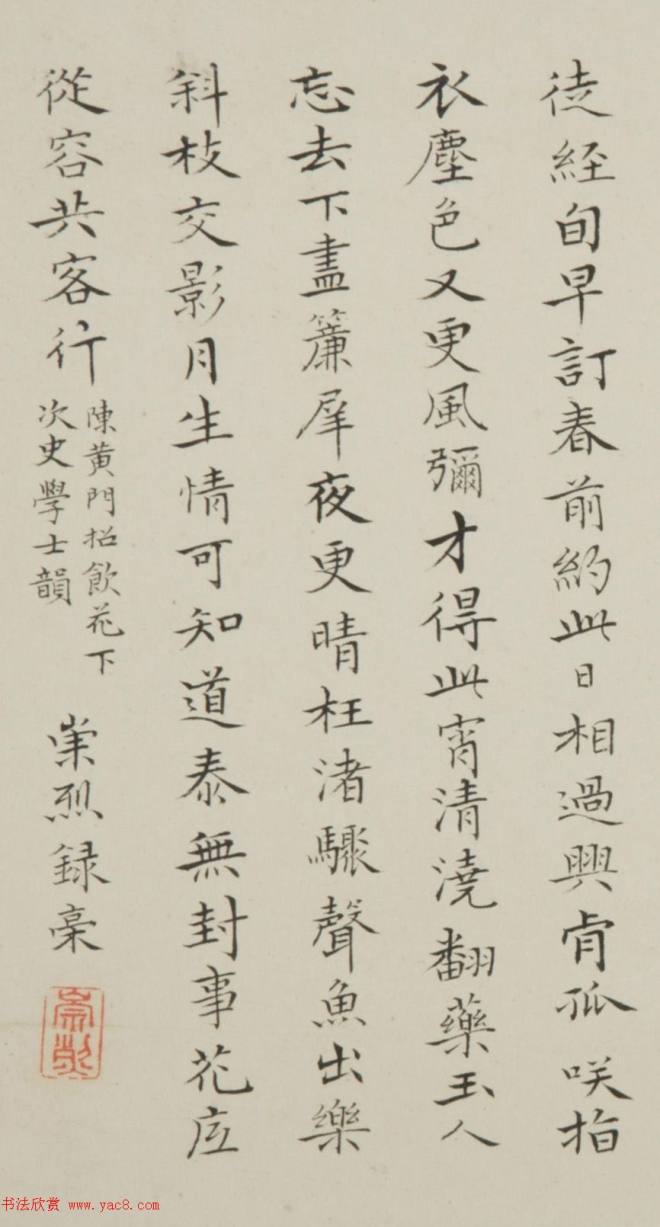 徒経旬早訂春前約此日相過興肯孤咲指
衣塵色又更風彌才得此宵清澆翻藥玉人
忘去下盡簾犀夜更晴枉渚驟聲魚出樂
斜枝交影月生情可知道泰無封事花底
從容共客行
陳黄門招飲花下
次史學士韻
崇烈録稾
書法欣赏 www.yac8.com